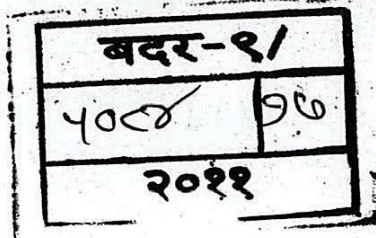 बदर-९/
५०८४ १७
२०११